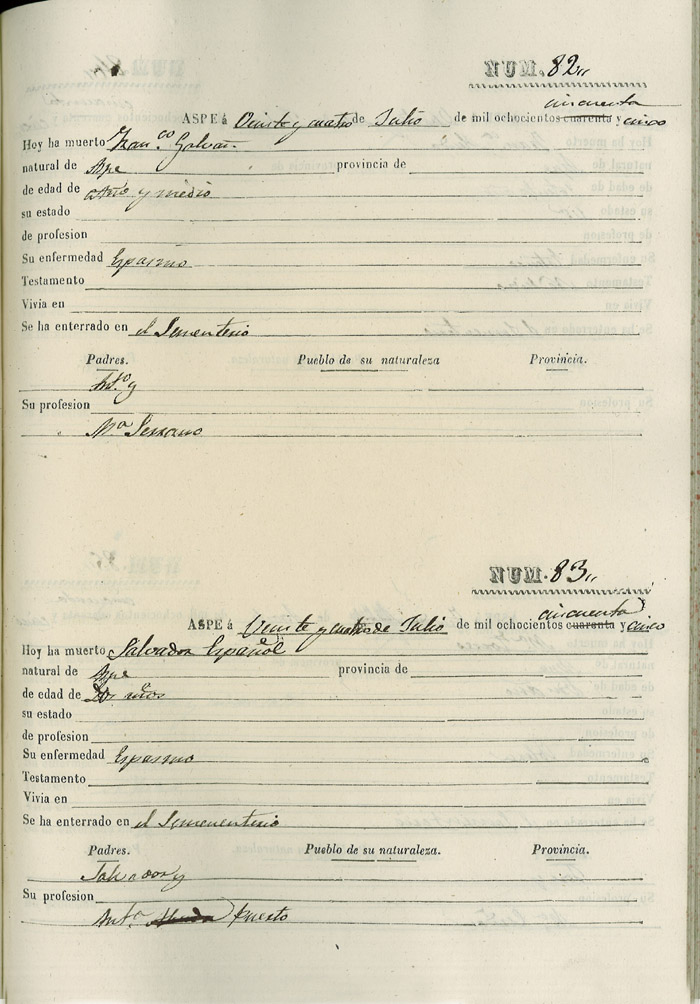 NUM. 82,,
cincuenta
ASPE á Veinte y cuatro de Julio de mil ochocientos cuarenta y cinco
Hoy ha muerto Fran.co Galvañ.
natural de Aspe provincia de
de edad de Año y medio
su estado
de profesion
Su enfermedad Espasmo
Testamento
Vivia en
Se ha enterrado en el Sementerio
Padres. Pueblo de su naturaleza Provincia.
Ant.o y
Su profesion
M.a Serrano
NUM. 83,,
cincuenta
ASPE á Veinte y cuatro de Julio de mil ochocientos cuarenta y cinco
Hoy ha muerto Salvador Español
natural de Aspe provincia de
de edad de Dos años
su estado
de profesion
Su enfermedad Espasmo
Testamento
Vivia en
Se ha enterrado en el Sementerio
Padres. Pueblo de su naturaleza. Provincia.
Salvador y
Su profesion
Ant.a Puesto